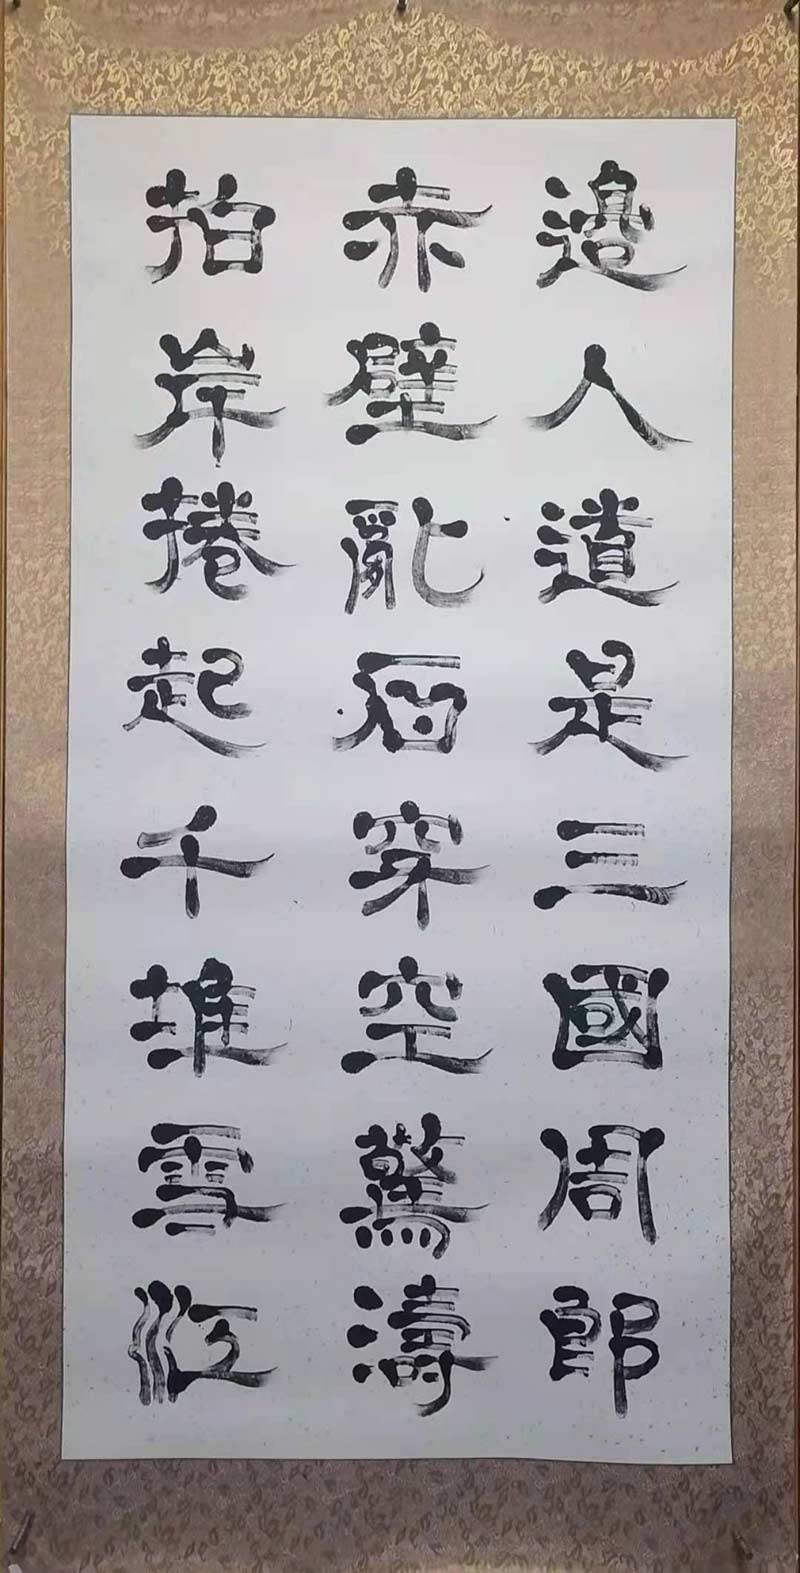 邉人道是三國周郎
赤壁亂石穿空驚濤
拍岸捲起千堆雪江